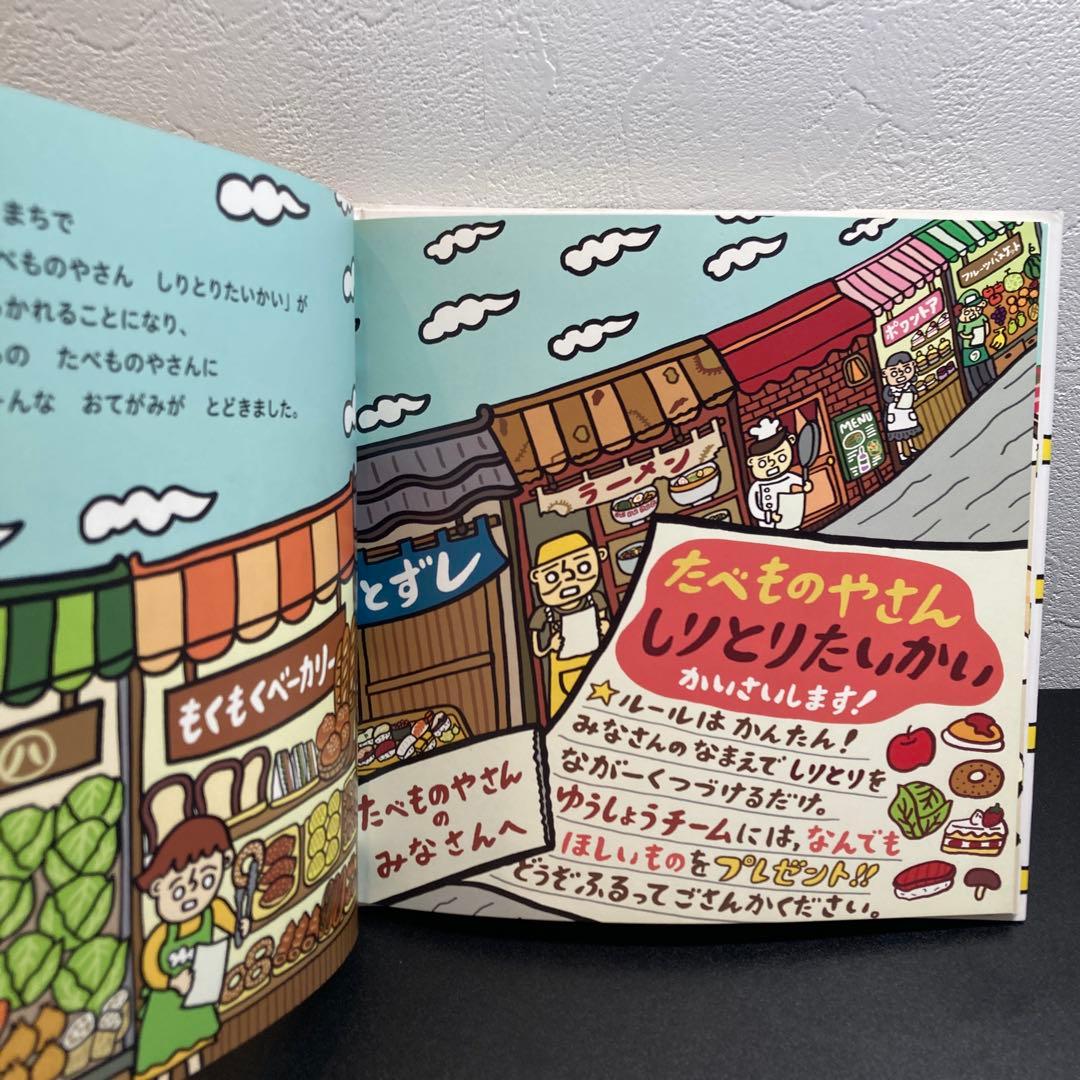 まちで
べものやさん　しりとりたいかい」が
かれることになり、
の　たべものやさんに
んな　おてがみが　とどきました。
八
もくもくベーカリー
とずし
ラーメン
MENU
ポワントア
フルーツバスケット
たべものやさん
の
みなさんへ
たべものやさん
しりとりたいかい
かいさいします!
☆ルールは かんたん!
みなさんのなまえで しりとりを
ながーくつづけるだけ。
ゆうしょうチームには、なんでも
ほしいものを プレゼント!!
どうぞふるってごさんかください。